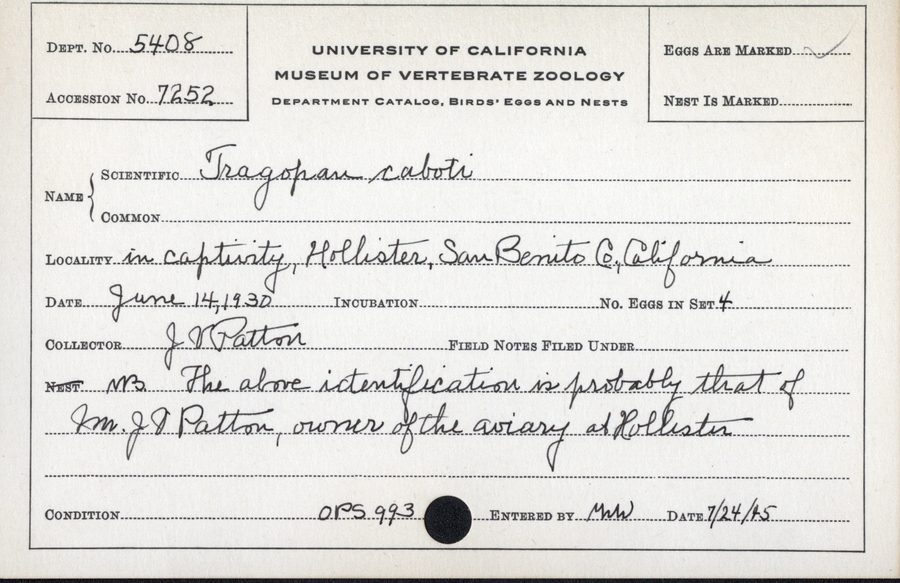 DEPT. NO. 5408
ACCESSION NO. 7252
UNIVERSITY OF CALIFORNIA
MUSEUM OF VERTEBRATE ZOOLOGY
DEPARTMENT CATALOG, BIRDS' EGGS AND NESTS
EGGS ARE MARKED ✓
NEST IS MARKED
NAME
SCIENTIFIC Tragopan caboti
COMMON
LOCALITY in captivity, Hollister, San Benito Co., California
DATE June 14, 1930 INCUBATION NO. EGGS IN SET 4
COLLECTOR J V Patton FIELD NOTES FILED UNDER
NEST NB. The above identification is probably that of
Mr. J V Patton, owner of the aviary at Hollister
CONDITION OPS 993 ENTERED BY DATE 7/24/45